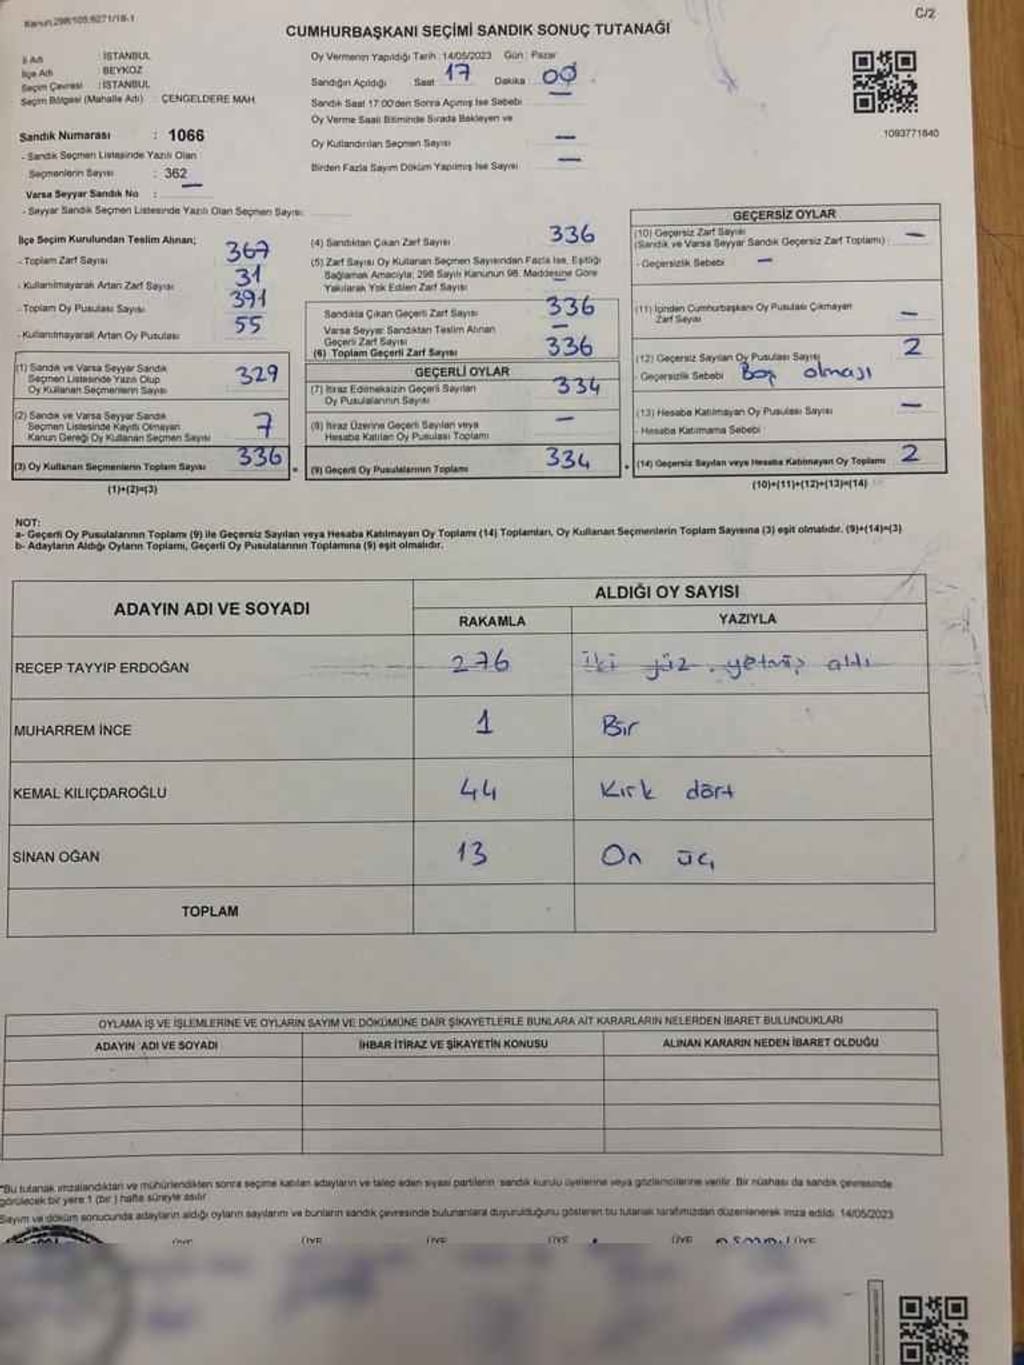 Kanun 298/105.6271/18-1
C/2
CUMHURBAŞKANI SEÇİMİ SANDIK SONUÇ TUTANAĞI
İl Adı : İSTANBUL
İlçe Adı : BEYKOZ
Seçim Çevresi : İSTANBUL
Seçim Bölgesi (Mahalle Adı) : ÇENGELDERE MAH.
Oy Vermenin Yapıldığı Tarih :14/05/2023 Gün : Pazar
Sandığın Açıldığı Saat 17 Dakika : 00
Sandık Saat 17:00'den Sonra Açımış İse Sebebi
Oy Verme Saati Bitiminde Sırada Bekleyen ve
Oy Kullandırılan Seçmen Sayısı —
Birden Fazla Sayım Döküm Yapılmış İse Sayısı —
1093771840
Sandık Numarası : 1066
- Sandık Seçmen Listesinde Yazılı Olan
Seçmenlerin Sayısı : 362
Varsa Seyyar Sandık No : —
- Seyyar Sandık Seçmen Listesinde Yazılı Olan Seçmen Sayısı:
İlçe Seçim Kurulundan Teslim Alınan;
- Toplam Zarf Sayısı 367
- Kullanılmayarak Artan Zarf Sayısı 31
- Toplam Oy Pusulası Sayısı 391
- Kullanılmayarak Artan Oy Pusulası 55
(1) Sandık ve Varsa Seyyar Sandık
Seçmen Listesinde Yazılı Olup
Oy Kullanan Seçmenlerin Sayısı 329
(2) Sandık ve Varsa Seyyar Sandık
Seçmen Listesinde Kayıtlı Olmayan
Kanun Gereği Oy Kullanan Seçmen Sayısı 7
(3) Oy Kullanan Seçmenlerin Toplam Sayısı 336
(1)+(2)=(3)
(4) Sandıktan Çıkan Zarf Sayısı 336
(5) Zarf Sayısı Oy Kullanan Seçmen Sayısından Fazla İse, Eşitliği
Sağlamak Amacıyla; 298 Sayılı Kanunun 98. Maddesine Göre
Yakılarak Yok Edilen Zarf Sayısı —
Sandıkta Çıkan Geçerli Zarf Sayısı 336
Varsa Seyyar Sandıktan Teslim Alınan
Geçerli Zarf Sayısı —
(6) Toplam Geçerli Zarf Sayısı 336
GEÇERLİ OYLAR
(7) İtiraz Edilmeksizin Geçerli Sayılan
Oy Pusulalarının Sayısı 334
(8) İtiraz Üzerine Geçerli Sayılan veya
Hesaba Katılan Oy Pusulası Toplamı —
(9) Geçerli Oy Pusulalarının Toplamı 334
GEÇERSİZ OYLAR
(10) Geçersiz Zarf Sayısı
(Sandık ve Varsa Seyyar Sandık Geçersiz Zarf Toplamı) : —
- Geçersizlik Sebebi —
(11) İçinden Cumhurbaşkanı Oy Pusulası Çıkmayan
Zarf Sayısı —
(12) Geçersiz Sayılan Oy Pusulası Sayısı 2
- Geçersizlik Sebebi Boş olması
(13) Hesaba Katılmayan Oy Pusulası Sayısı —
- Hesaba Katılmama Sebebi :
(14) Geçersiz Sayılan veya Hesaba Katılmayan Oy Toplamı 2
(10)+(11)+(12)+(13)=(14)
NOT:
a- Geçerli Oy Pusulalarının Toplamı (9) ile Geçersiz Sayılan veya Hesaba Katılmayan Oy Toplamı (14) Toplamları, Oy Kullanan Seçmenlerin Toplam Sayısına (3) eşit olmalıdır. (9)+(14)=(3)
b- Adayların Aldığı Oyların Toplamı, Geçerli Oy Pusulalarının Toplamına (9) eşit olmalıdır.
ADAYIN ADI VE SOYADI
ALDIĞI OY SAYISI
RAKAMLA YAZIYLA
RECEP TAYYİP ERDOĞAN 276 iki yüz yetmiş altı
MUHARREM İNCE 1 Bir
KEMAL KILIÇDAROĞLU 44 Kırk dört
SİNAN OĞAN 13 On üç
TOPLAM
OYLAMA İŞ VE İŞLEMLERİNE VE OYLARIN SAYIM VE DÖKÜMÜNE DAİR ŞİKAYETLERLE BUNLARA AİT KARARLARIN NELERDEN İBARET BULUNDUKLARI
ADAYIN ADI VE SOYADI İHBAR İTİRAZ VE ŞİKAYETİN KONUSU ALINAN KARARIN NEDEN İBARET OLDUĞU
*Bu tutanak imzalandıktan ve mühürlendikten sonra seçime katılan adayların ve talep eden siyasi partilerin sandık kurulu üyelerine veya gözlemcilerine verilir. Bir nüshası da sandık çevresinde
görülecek bir yere 1 (bir) hafta süreyle asılır
Sayım ve döküm sonucunda adayların aldığı oyların sayılarını ve bunların sandık çevresinde bulunanlara duyurulduğunu gösteren bu tutanak tarafımızdan düzenlenerek imza edildi. 14/05/2023
ÜYE ÜYE ÜYE ÜYE ÜYE ÜYE